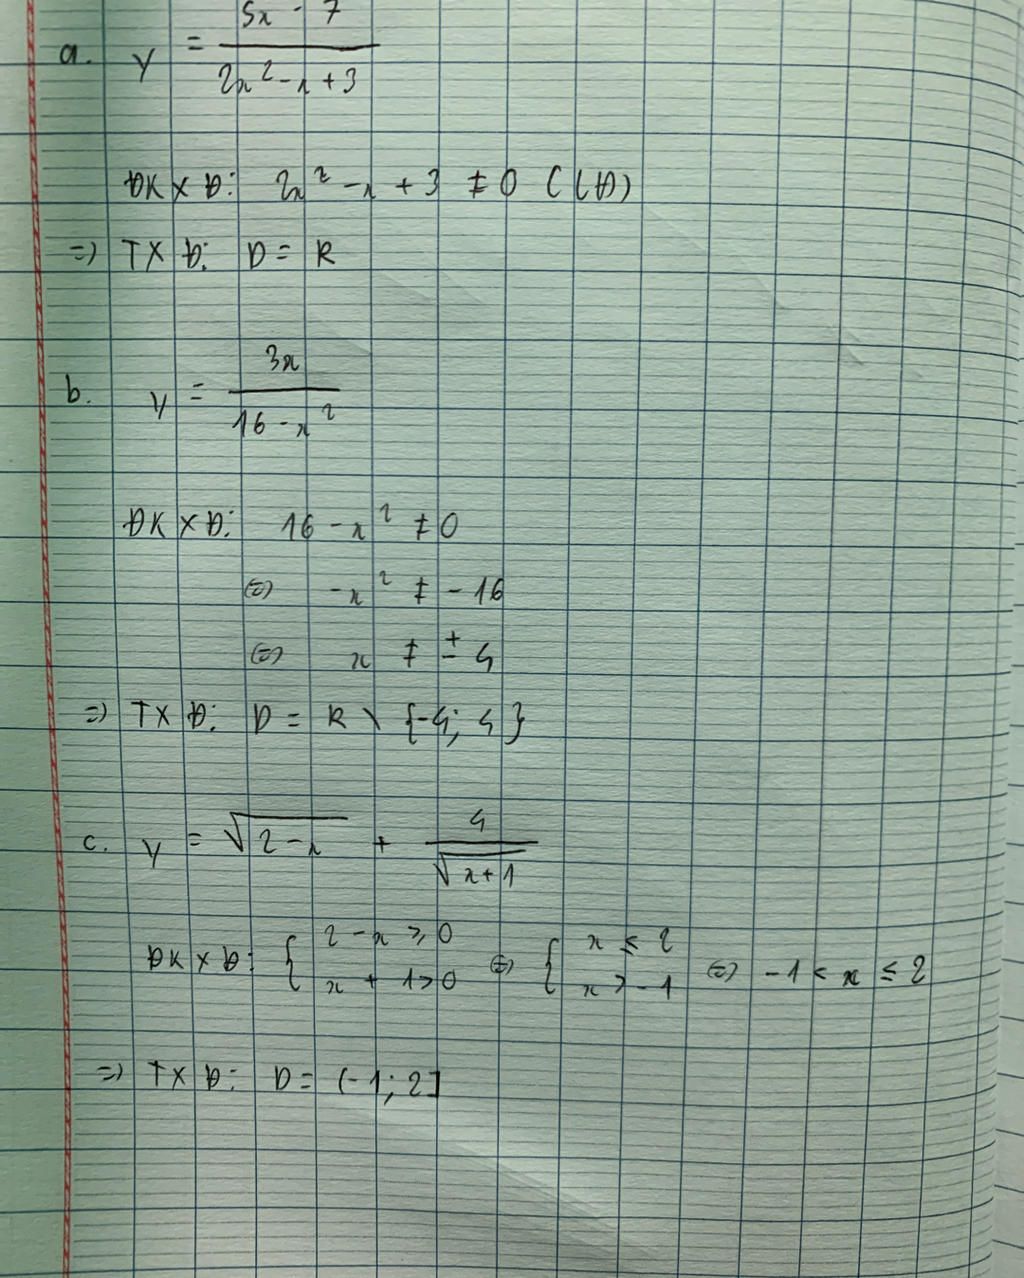 a. y = (5x - 7)/(2x² - x + 3)
ĐKXĐ: 2x² - x + 3 ≠ 0 (LĐ)
=> TXĐ: D = R
b. y = 3x/(16 - x²)
ĐKXĐ: 16 - x² ≠ 0
⇔ -x² ≠ -16
⇔ x ≠ ± 4
=> TXĐ: D = R \ {-4; 4}
c. y = √(2 - x) + 4/√(x + 1)
ĐKXĐ: { 2 - x ≥ 0; x + 1 > 0 ⇔ { x ≤ 2; x > -1 ⇔ -1 < x ≤ 2
=> TXĐ: D = (-1; 2]